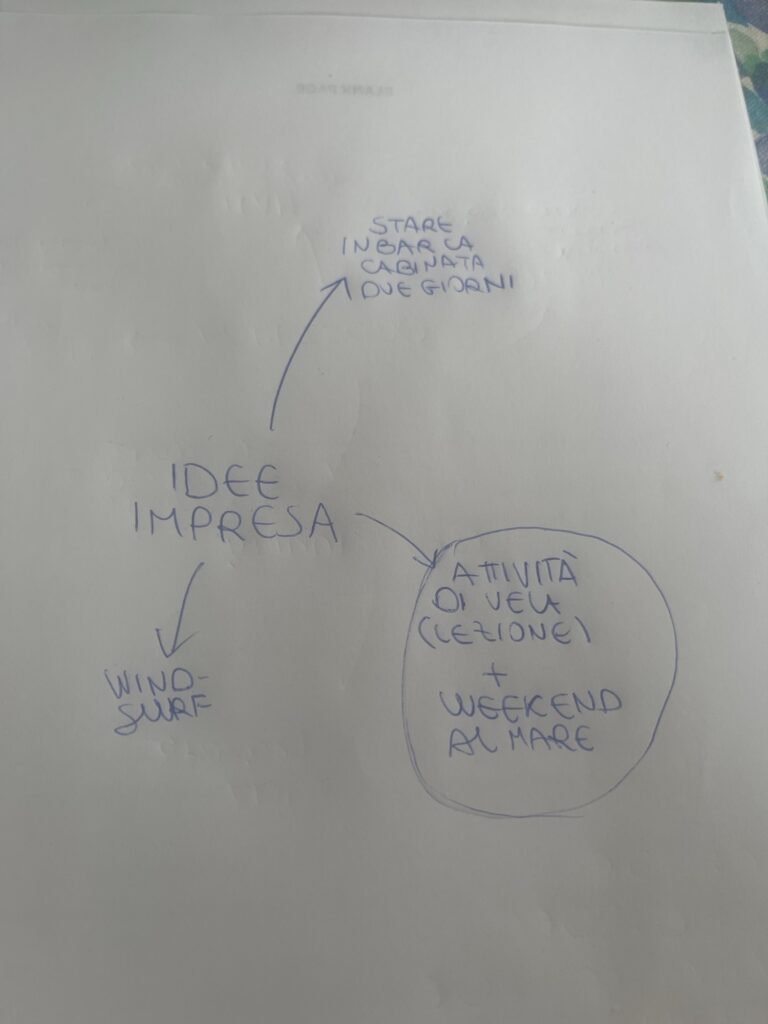 STARE
IN BARCA
CABINATA
DUE GIORNI
IDEE
IMPRESA
ATTIVITÀ
DI VELA
(LEZIONE)
+
WEEKEND
AL MARE
WIND-
SURF